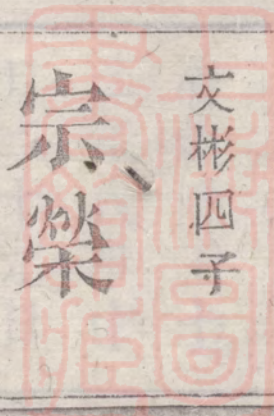 文彬四子
宗榮